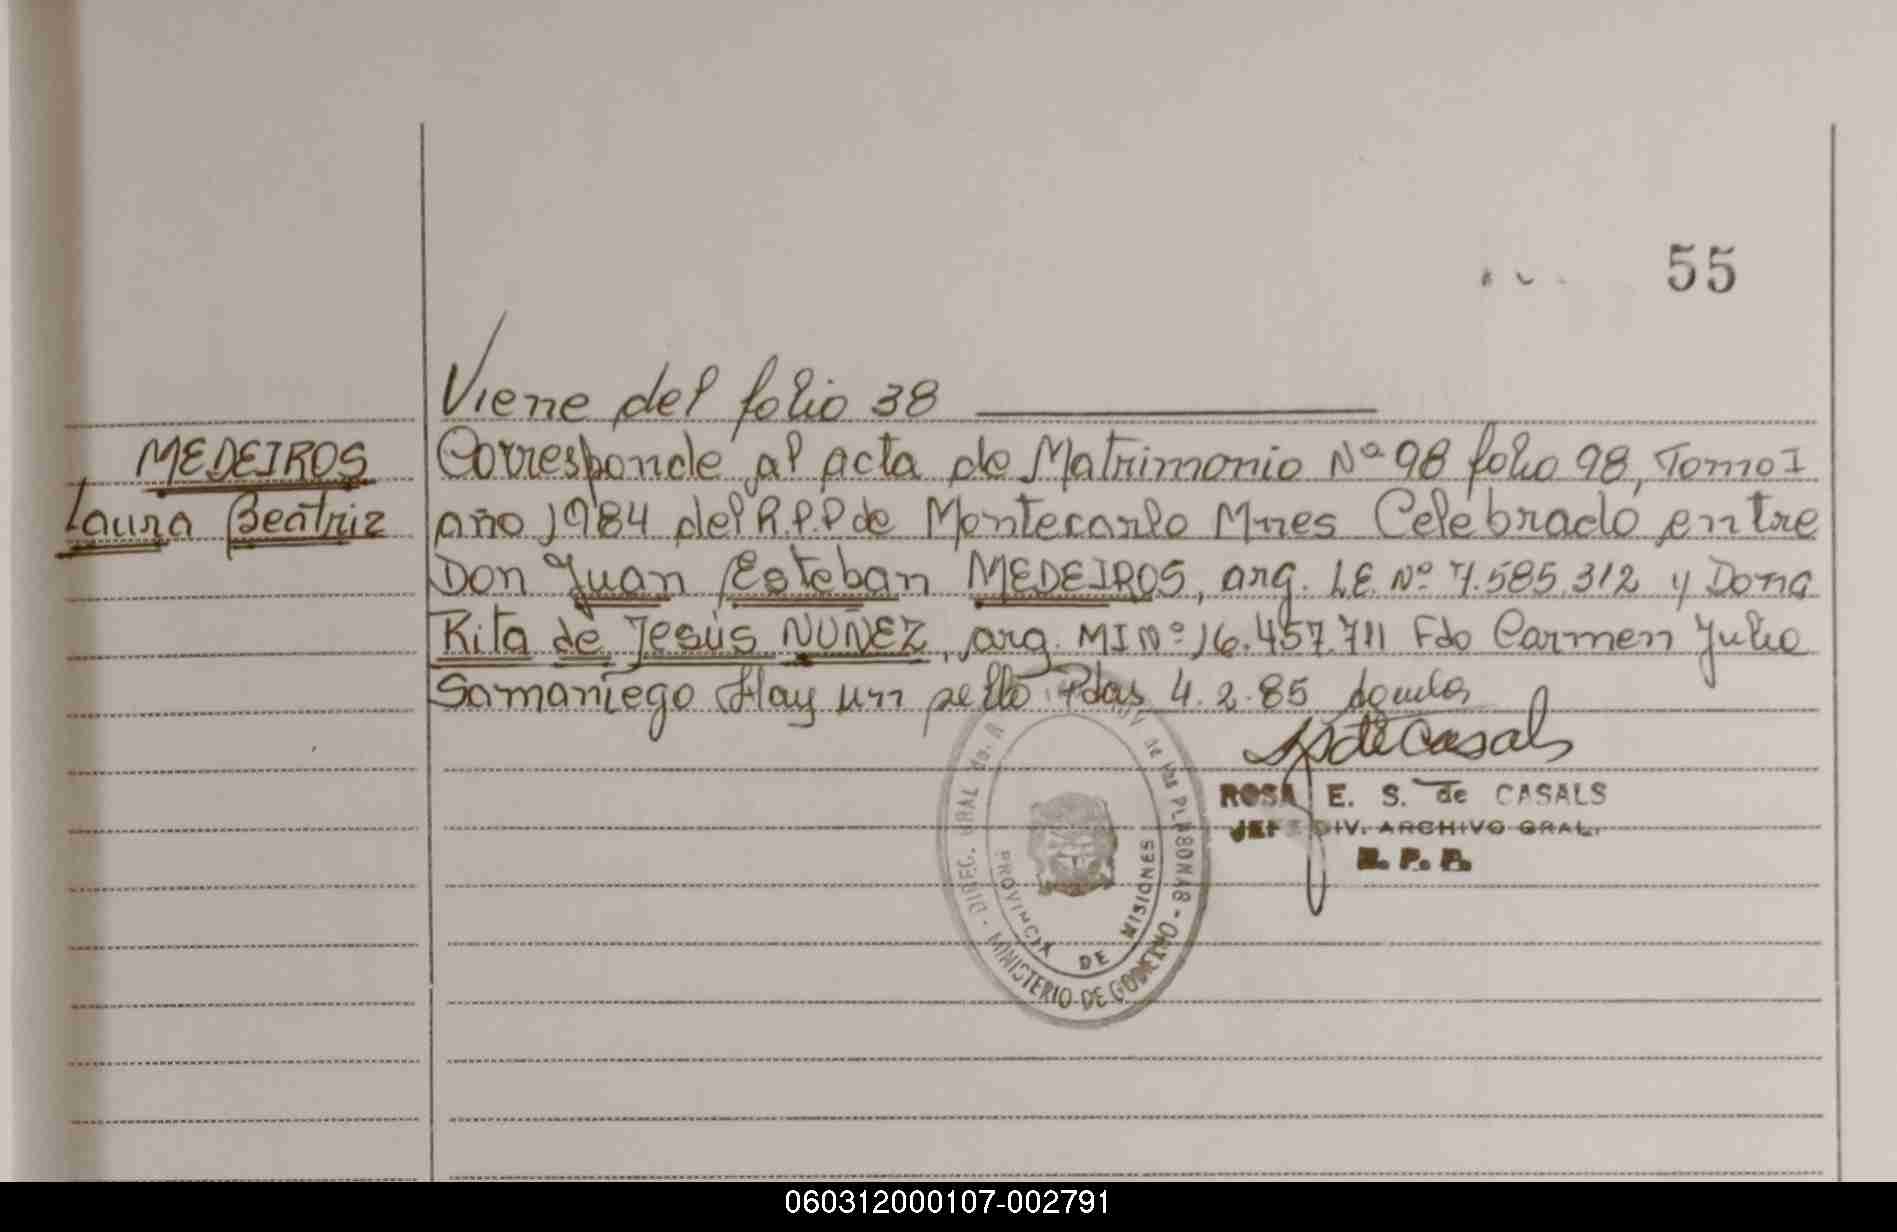 55
Viene del folio 38
MEDEIROS
Laura Beatriz
Corresponde al acta de Matrimonio Nº 98 folio 98, Tomo I
año 1984 del R.P.P de Montecarlo Mnes Celebrado entre
Don Juan Esteban MEDEIROS, arg. L.E. Nº 7.585.312 y Dona
Rita de Jesús NUÑEZ, arg. MI Nº 16.457.711 Fdo Carmen Julio
Samaniego Hay un sello Pdas 4.2.85
de Casals
ROSA E. S. de CASALS
JEFE DIV. ARCHIVO GRAL.
R. P. P.
DIREC. GRAL de las PERSONAS - MINISTERIO DE GOBIERNO -
PROVINCIA DE MISIONES
060312000107-002791